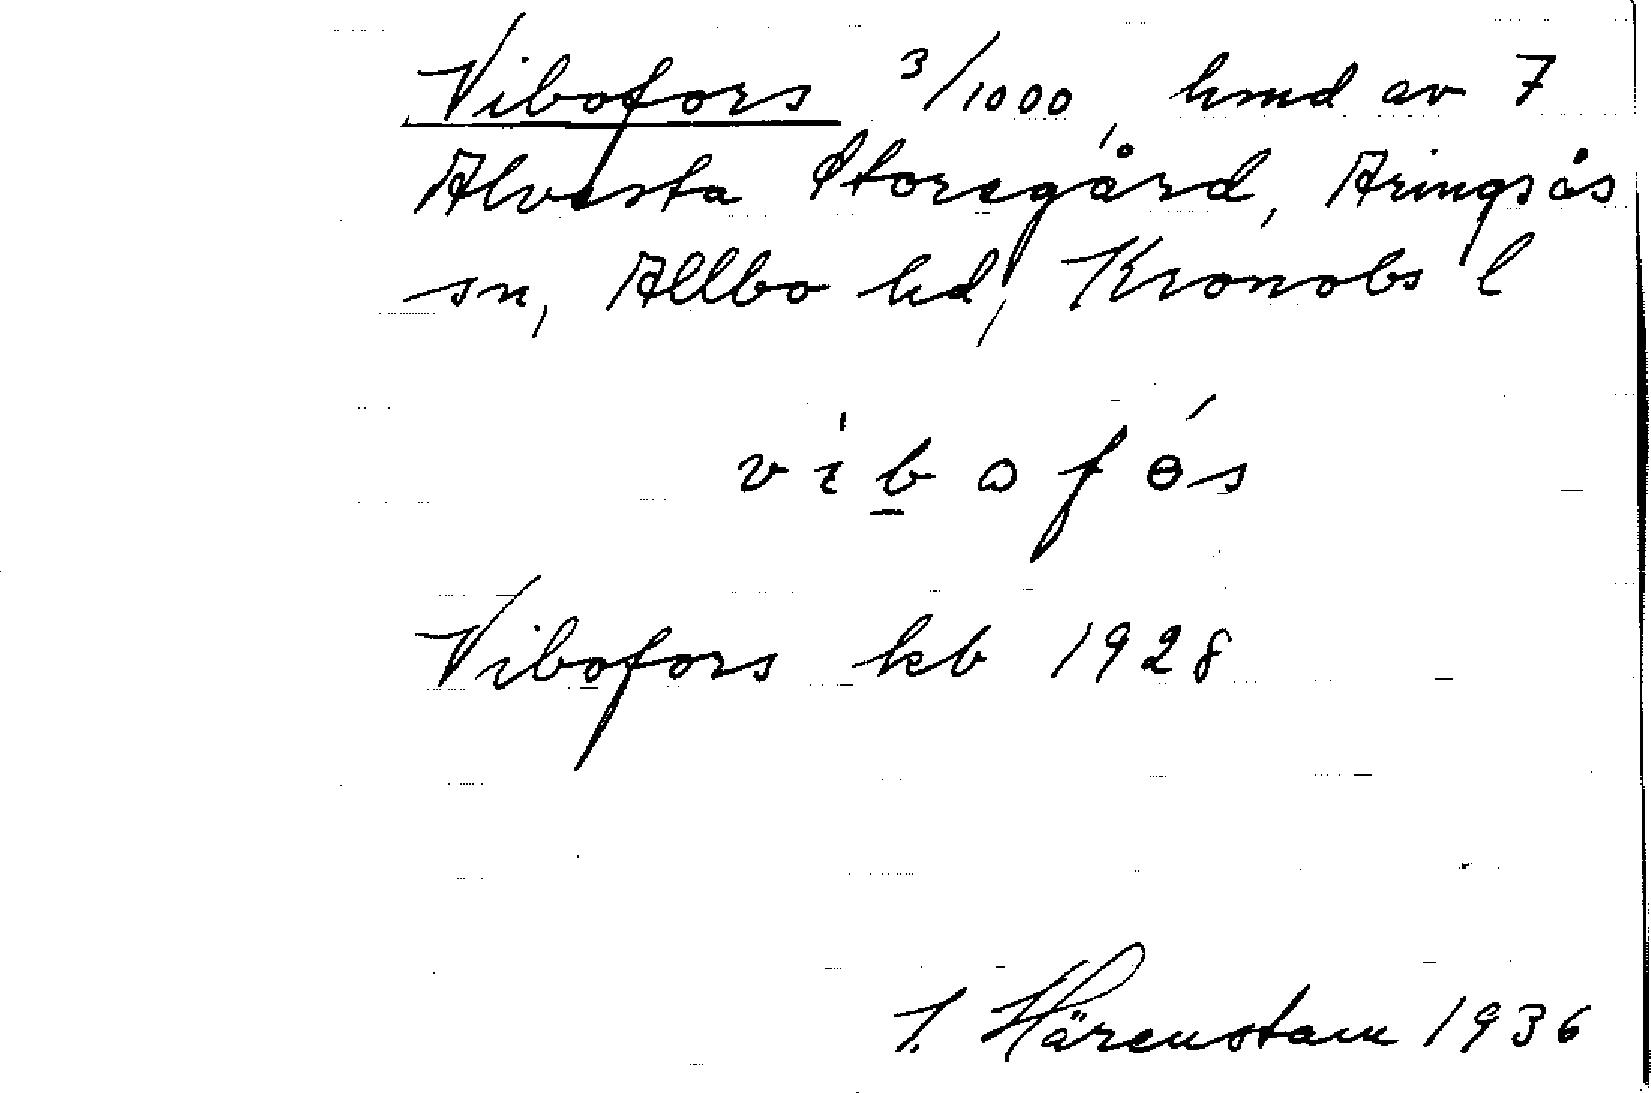 Vibofors 3/1000, hmd av 7
Alvesta Storegård, Aringsås
sn, Allbo hd, Kronobs l
vibofɵ́s
Vibofors kb 1928
I. Härenstam 1936